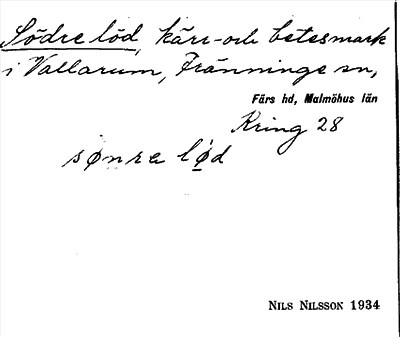 Södre löd, kärr- och betesmark
i Vallarum, Fränninge sn,
Färs hd, Malmöhus län
Kring 28
sønra lø̱d
NILS NILSSON 1934